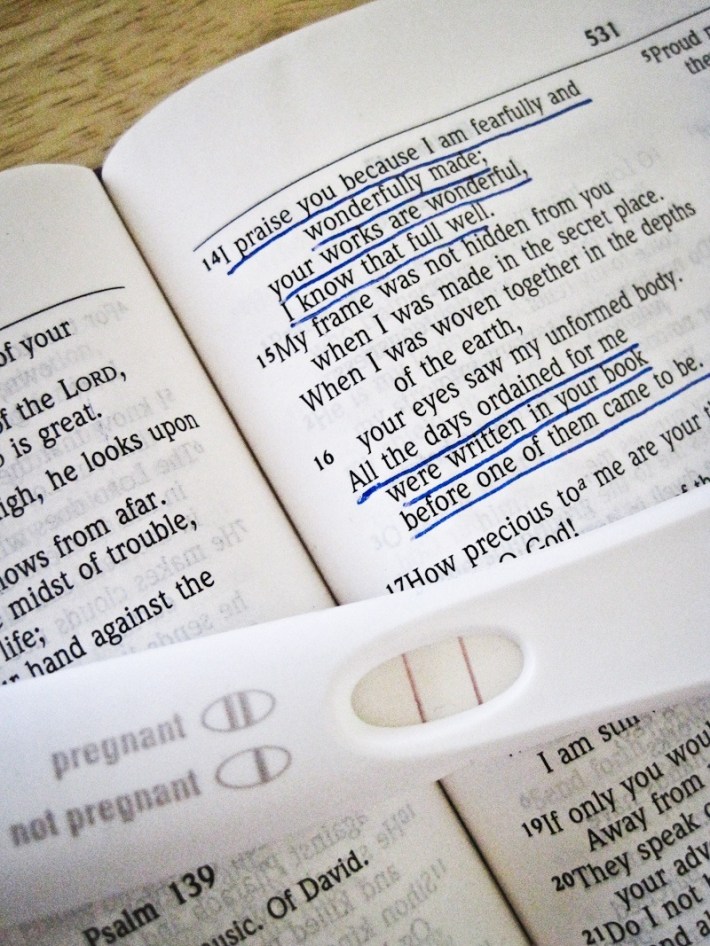 531
14I praise you because I am fearfully and
wonderfully made;
your works are wonderful,
I know that full well.
15My frame was not hidden from you
when I was made in the secret place.
When I was woven together in the depths
of the earth,
16 your eyes saw my unformed body.
All the days ordained for me
were written in your book
before one of them came to be.
17How precious toa me are your
God!
5Proud
of your
of the LORD,
is great.
he looks upon
from afar.
midst of trouble,
life;
hand against the
pregnant
not pregnant
Psalm 139
Of David.
I am
19If only you
Away from
20They speak
your
21Do I not